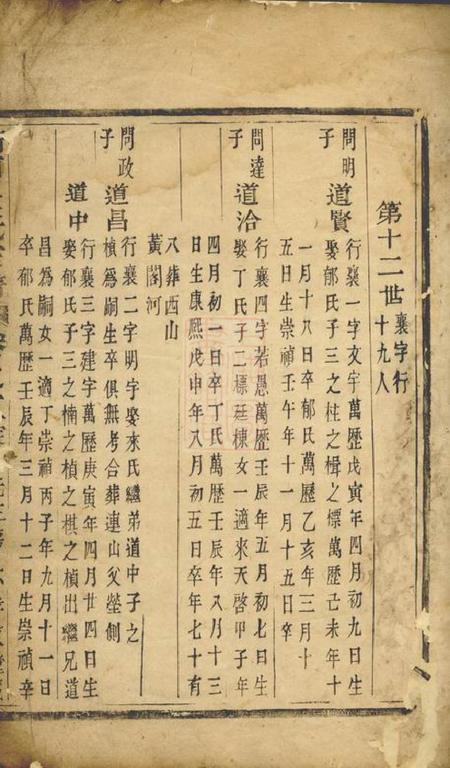 第十二世襄字行十九人
問明子 道賢 行襄一字文宇萬曆戊寅年四月初九日生
娶郁氏子三之柱之楫之標萬曆己未年十
一月十八日卒郁氏萬曆乙亥年三月十
五日生崇禎壬午年十一月十五日卒
問達子 道洽 行襄四字若愚萬歷壬辰年五月初七日生
娶丁氏子二標廷棟女一適來天啓甲子年
四月初一日卒丁氏萬歷壬辰年八月十三
日生康熙戊申年八月初五日卒年七十有
八葬西山
黃閣河
問政子 道昌 行襄二字明宇娶來氏繼弟道中子之
楨為嗣生卒俱無考合葬連山父塋側
道中 行襄三字建宇萬歷庚寅年四月廿四日生
娶郁氏子三之楠之楨之棋之楨出繼兄道
昌為嗣女一適丁崇禎丙子年九月十一日
卒郁氏萬歷壬辰年三月十二日生崇禎辛